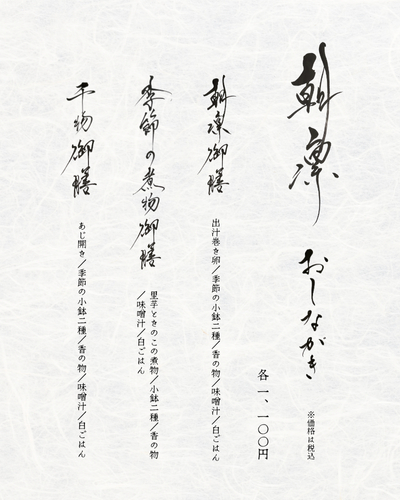 朝凛
おしながき
※価格は税込
各一、一〇〇円
朝凛御膳
出汁巻き卵／季節の小鉢二種／香の物／味噌汁／白ごはん
季節の煮物御膳
里芋ときのこの煮物／小鉢二種／香の物
／味噌汁／白ごはん
干物御膳
あじ開き／季節の小鉢二種／香の物／味噌汁／白ごはん